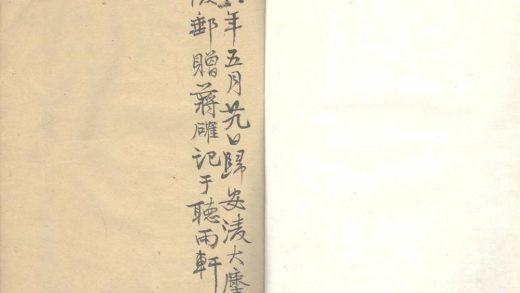 年五月廿九日歸安淩大
郵贈蔣雕記于聽雨軒